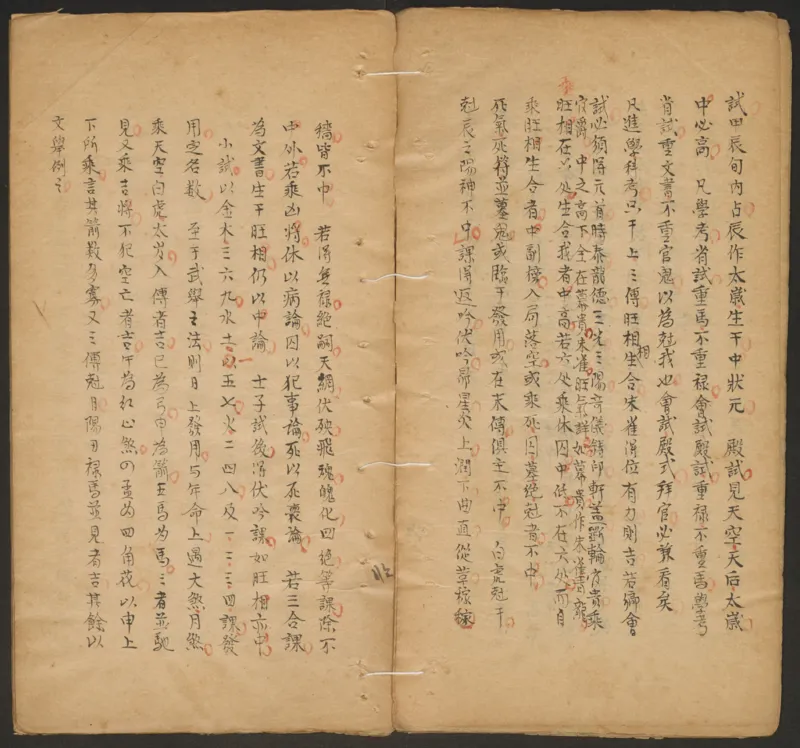 試田辰旬內占辰作太歲生干中狀元 殿試見天空天后太歲
中必高 凡學考省試重馬不重祿會試殿試重祿不重馬學考
省試重文書不重官鬼以為尅我也會試殿式拜官必該看矣
凡進學科考只干上三傳旺相相生合朱雀得位有力則吉若鄉會
試必須得元首時泰龍德三光三陽奇儀鑄印軒蓋斲輪官貴乘
官爵 中之高下全在幕貴朱雀旺氣詳如幕貴作朱雀青龍
旺相在六处生合我者中高若六处乘休囚中低不在六处而自
乘旺相生合者中副榜入局落空或乘死囚墓绝尅者不中
死氣死將並墓鬼或臨干發用或在末傳俱主不中 白虎尅干
尅辰三陽神不中課得返吟伏吟昴星炎上潤下曲直從革稼穡
穡皆不中 若得無祿絕嗣天網伏殃飛魂魄化四絕等課除不
中外若乘凶將休以病論囚以犯事論死以死喪論 若三合課
為文書生干旺相仍以中論 士子試後得伏吟課如旺相亦中
小試以金木三六九水土一以五七火二四八及一二三四課發
用定名數 至于武舉之法則日上發用与年命上遇大煞月煞
乘天空白虎太歲入傳者吉巳為弓申為箭午馬為馬三者並馳
見又乘吉將不犯空亡者吉午為紅心煞の孟為四角花以申上
下所乘言其箭数多寡又三傳尅日陽刃祿馬並見者吉其餘以
文學例之